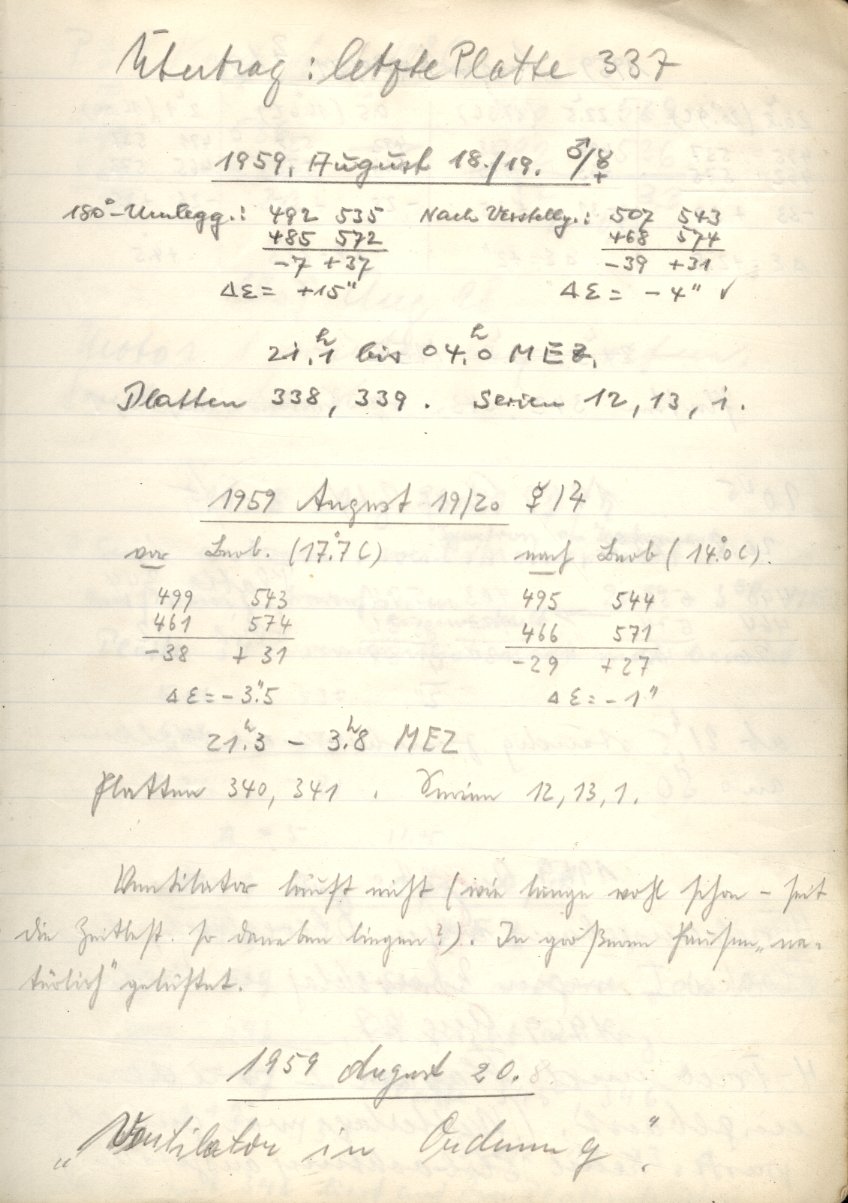 Übertrag: letzte Platte 337
1959, August 18./19. ♂/☿
180°-Umlegg.: 492 535 Nach Verstellg.: 507 543
485 572 468 574
-7 +37 -39 +31
Δε = +15" Δε = -4" ✓
21.ʰ1 bis 04.ʰ0 MEZ.
Platten 338, 339. Serien 12, 13, 1.
1959 August 19/20 ☿/♃
vor Beob. (17.°7 C) nach Beob (14.°0 C).
499 543 495 544
461 574 466 571
-38 +31 -29 +27
Δε = -3."5 Δε = -1"
21.ʰ3 - 3.ʰ8 MEZ
Platten 340, 341. Serien 12, 13, 1.
Ventilator läuft nicht (wie lange wohl schon - seit
die Zeitbest. so daneben liegen?). In größeren Pausen „na-
türlich" gelüftet.
1959 August 20.
„Ventilator in Ordnung".